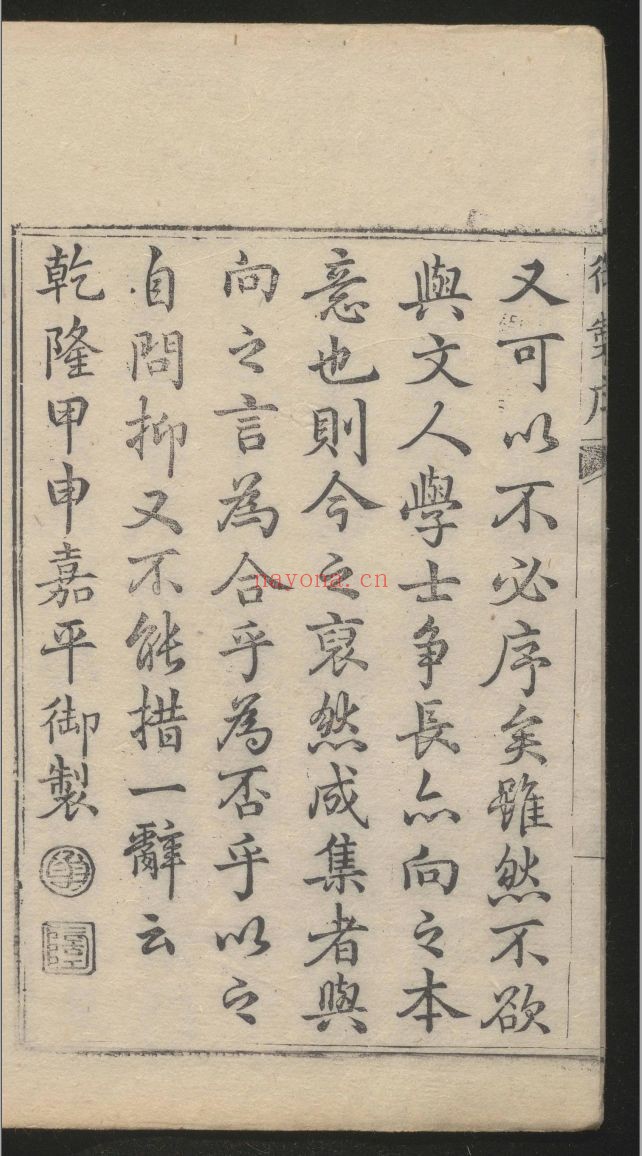 御製序
又可以不必序矣雖然不欲
與文人學士爭長亦向之本
意也則今之裒然成集者與
向之言為合乎為否乎以之
自問抑又不能措一辭云
乾隆甲申嘉平御製
nayona.cn